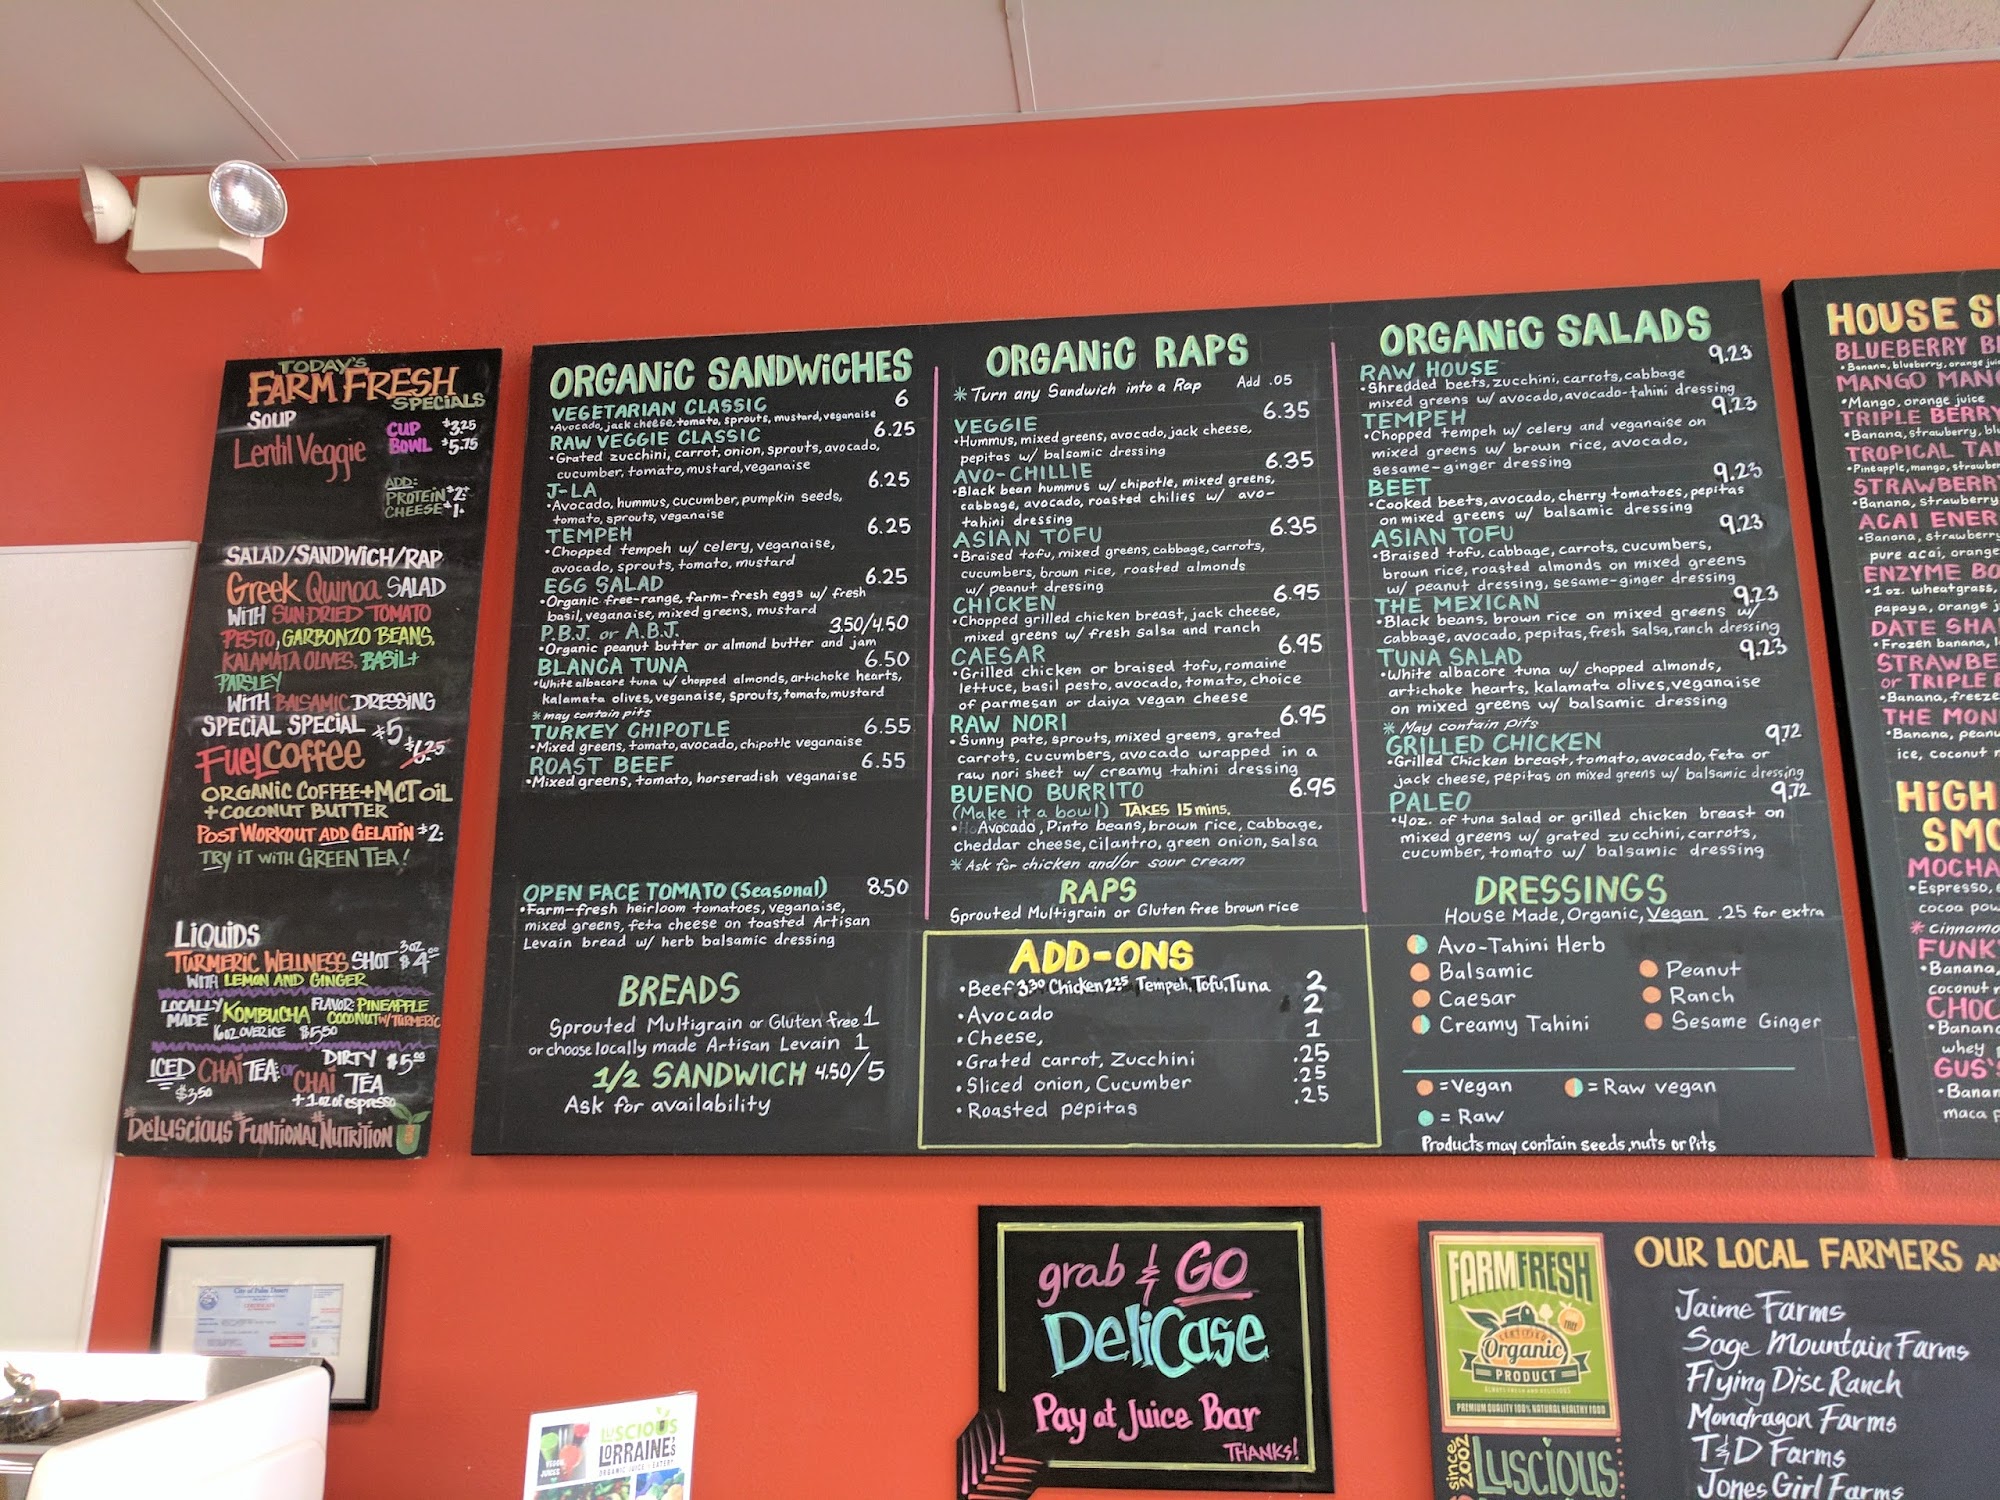 TODAY'S
FARM FRESH
SPECIALS
SOUP
Lentil Veggie
CUP $3.25
BOWL $5.75
ADD:
PROTEIN $2.
CHEESE $1.
SALAD/SANDWICH/RAP
Greek Quinoa SALAD
WITH SUNDRIED TOMATO
PESTO, GARBONZO BEANS,
KALAMATA OLIVES, BASIL +
PARSLEY
WITH BALSAMIC DRESSING
SPECIAL SPECIAL $5
FUEL COFFEE $6.25
ORGANIC COFFEE + MCT OIL
+ COCONUT BUTTER
POST WORKOUT ADD GELATIN $2.
TRY IT WITH GREEN TEA!
LIQUIDS
TURMERIC WELLNESS SHOT 3oz $4.00
WITH LEMON AND GINGER
LOCALLY MADE KOMBUCHA FLAVOR: PINEAPPLE
COCONUT W/ TURMERIC
16oz OVER ICE $5.50
ICED CHAI TEA: or DIRTY $5.00
CHAI TEA
$3.50
+ 1 oz of espresso
*DELUSCIOUS *FUNTIONAL *NUTRITION
ORGANIC SANDWICHES
VEGETARIAN CLASSIC 6
•Avocado, jack cheese, tomato, sprouts, mustard, veganaise
RAW VEGGIE CLASSIC 6.25
•Grated zucchini, carrot, onion, sprouts, avocado,
cucumber, tomato, mustard, veganaise
J-LA 6.25
•Avocado, hummus, cucumber, pumpkin seeds,
tomato, sprouts, veganaise
TEMPEH 6.25
•Chopped tempeh w/ celery, veganaise,
avocado, sprouts, tomato, mustard
EGG SALAD 6.25
•Organic free-range, farm-fresh eggs w/ fresh
basil, veganaise, mixed greens, mustard
P.B.J. or A.B.J. 3.50/4.50
•Organic peanut butter or almond butter and jam
BLANCA TUNA 6.50
•White albacore tuna w/ chopped almonds, artichoke hearts,
kalamata olives, veganaise, sprouts, tomato, mustard
*may contain pits
TURKEY CHIPOTLE 6.55
•Mixed greens, tomato, avocado, chipotle veganaise
ROAST BEEF 6.55
•Mixed greens, tomato, horseradish veganaise
OPEN FACE TOMATO (Seasonal) 8.50
•Farm-fresh heirloom tomatoes, veganaise,
mixed greens, feta cheese on toasted Artisan
Levain bread w/ herb balsamic dressing
BREADS
Sprouted Multigrain or Gluten free 1
or choose locally made Artisan Levain 1
1/2 SANDWICH 4.50/5
Ask for availability
ORGANIC RAPS
*Turn any Sandwich into a Rap Add .05
VEGGIE 6.35
•Hummus, mixed greens, avocado, jack cheese,
pepitas w/ balsamic dressing
AVO-CHILLIE 6.35
•Black bean hummus w/ chipotle, mixed greens,
cabbage, avocado, roasted chilies w/ avo-
tahini dressing
ASIAN TOFU 6.35
•Braised tofu, mixed greens, cabbage, carrots,
cucumbers, brown rice, roasted almonds
w/ peanut dressing
CHICKEN 6.95
•Chopped grilled chicken breast, jack cheese,
mixed greens w/ fresh salsa and ranch
CAESAR 6.95
•Grilled chicken or braised tofu, romaine
lettuce, basil pesto, avocado, tomato, choice
of parmesan or daiya vegan cheese
RAW NORI 6.95
•Sunny pate, sprouts, mixed greens, grated
carrots, cucumbers, avocado wrapped in a
raw nori sheet w/ creamy tahini dressing
BUENO BURRITO 6.95
(Make it a bowl) TAKES 15 mins.
•Avocado, Pinto beans, brown rice, cabbage,
cheddar cheese, cilantro, green onion, salsa
*Ask for chicken and/or sour cream
RAPS
Sprouted Multigrain or Gluten free brown rice
ADD-ONS
•Beef 3.30 Chicken 2.25 Tempeh, Tofu, Tuna 2
•Avocado 2
•Cheese, 1
•Grated carrot, Zucchini .25
•Sliced onion, Cucumber .25
•Roasted pepitas .25
ORGANIC SALADS
RAW HOUSE 9.23
•Shredded beets, zucchini, carrots, cabbage
mixed greens w/ avocado, avocado-tahini dressing
TEMPEH 9.23
•Chopped tempeh w/ celery and veganaise on
mixed greens w/ brown rice, avocado,
sesame-ginger dressing
BEET 9.23
•Cooked beets, avocado, cherry tomatoes, pepitas
on mixed greens w/ balsamic dressing
ASIAN TOFU 9.23
•Braised tofu, cabbage, carrots, cucumbers,
brown rice, roasted almonds on mixed greens
w/ peanut dressing, sesame-ginger dressing
THE MEXICAN 9.23
•Black beans, brown rice on mixed greens w/
cabbage, avocado, pepitas, fresh salsa, ranch dressing
TUNA SALAD 9.23
•White albacore tuna w/ chopped almonds,
artichoke hearts, kalamata olives, veganaise
on mixed greens w/ balsamic dressing
*May contain pits
GRILLED CHICKEN 9.72
•Grilled Chicken breast, tomato, avocado, feta or
jack cheese, pepitas on mixed greens w/ balsamic dressing
PALEO 9.72
•4oz. of tuna salad or grilled chicken breast on
mixed greens w/ grated zucchini, carrots,
cucumber, tomato w/ balsamic dressing
DRESSINGS
House Made, Organic, Vegan .25 for extra
Avo-Tahini Herb
Balsamic
Caesar
Creamy Tahini
Peanut
Ranch
Sesame Ginger
= Vegan
= Raw vegan
= Raw
Products may contain seeds, nuts or Pits
HOUSE S
BLUEBERRY B
•Banana, blueberry, orange jui
MANGO MANG
•Mango, orange juice
TRIPLE BERRY
•Banana, strawberry, blu
TROPICAL TAN
•Pineapple, mango, strawber
STRAWBERRY
•Banana, strawberry
ACAI ENER
•Banana, strawberry
pure acai, orange
ENZYME BO
•1 oz. wheatgrass,
papaya, orange j
DATE SHA
•Frozen banana, l
STRAWBE
or TRIPLE B
•Banana, freeze
THE MON
•Banana, peanu
ice, coconut m
HIGH
SMO
MOCHA
•Espresso, e
cocoa pow
*cinnamo
FUNK
•Banana,
coconut m
CHOC
•Banana
whey p
GUS'S
•Banan
maca p
City of Palm Desert
grab & GO
DeliCase
Pay at Juice Bar
THANKS!
LUSCIOUS
LORRAINE'S
ORGANIC JUICE + EATERY
FARM FRESH
CERTIFIED
Organic
PRODUCT
ALWAYS FRESH AND DELICIOUS
PREMIUM QUALITY 100% NATURAL HEALTHY FOOD
since 2002
LUSCIOUS
OUR LOCAL FARMERS AN
Jaime Farms
Sage Mountain Farms
Flying Disc Ranch
Mondragon Farms
T&D Farms
Jones Girl Farms